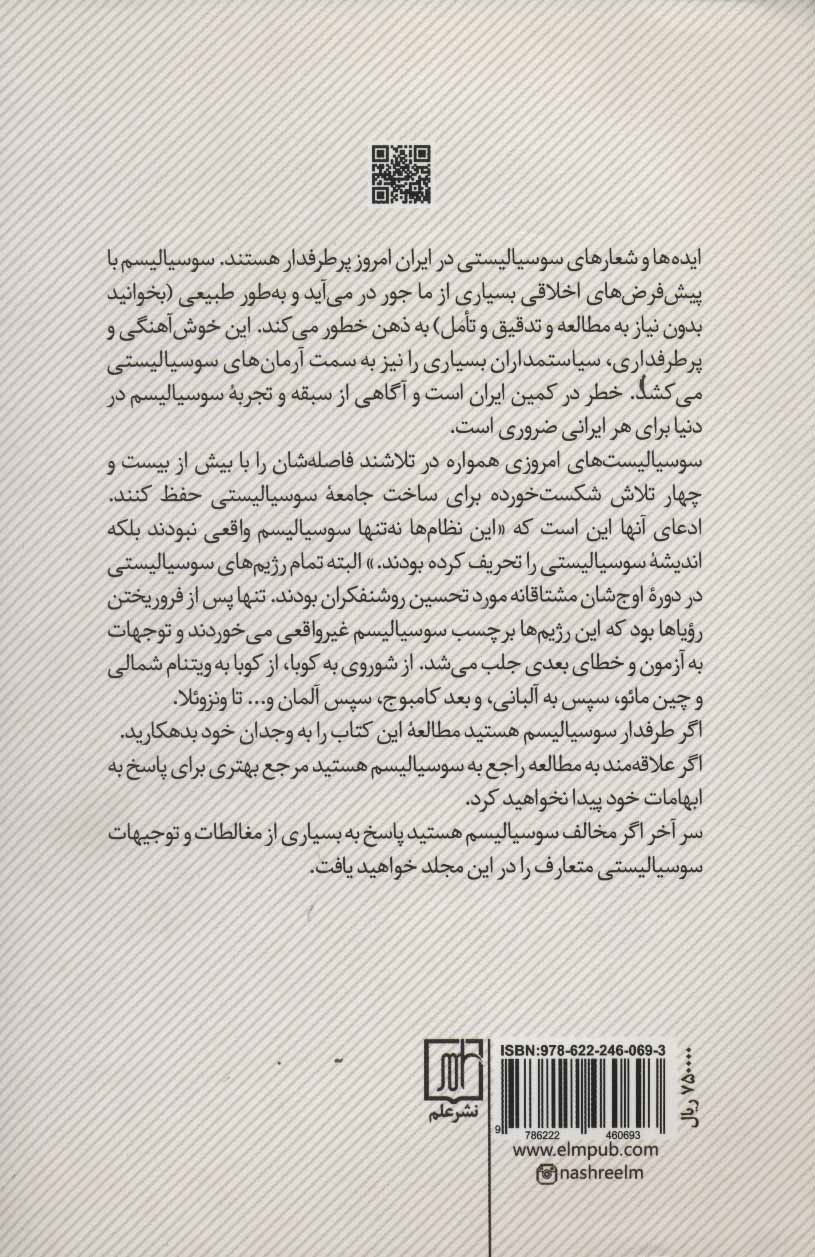 ایده‌ها و شعارهای سوسیالیستی در ایران امروز پرطرفدار هستند. سوسیالیسم با
پیش‌فرض‌های اخلاقی بسیاری از ما جور در می‌آید و به‌طور طبیعی (بخوانید
بدون نیاز به مطالعه و تدقیق و تأمل) به ذهن خطور می‌کند. این خوش‌آهنگی و
پرطرفداری، سیاستمداران بسیاری را نیز به سمت آرمان‌های سوسیالیستی
می‌کشد. خطر در کمین ایران است و آگاهی از سبقه و تجربهٔ سوسیالیسم در
دنیا برای هر ایرانی ضروری است.
سوسیالیست‌های امروزی همواره در تلاشند فاصله‌شان را با بیش از بیست و
چهار تلاش شکست‌خورده برای ساخت جامعهٔ سوسیالیستی حفظ کنند.
ادعای آنها این است که «این نظام‌ها نه‌تنها سوسیالیسم واقعی نبودند بلکه
اندیشهٔ سوسیالیستی را تحریف کرده بودند.» البته تمام رژیم‌های سوسیالیستی
در دورهٔ اوج‌شان مشتاقانه مورد تحسین روشنفکران بودند. تنها پس از فروریختن
رؤیاها بود که این رژیم‌ها برچسب سوسیالیسم غیرواقعی می‌خوردند و توجهات
به آزمون و خطای بعدی جلب می‌شد. از شوروی به کوبا، از کوبا به ویتنام شمالی
و چین مائو، سپس به آلبانی، و بعد کامبوج، سپس آلمان و... تا ونزوئلا.
اگر طرفدار سوسیالیسم هستید مطالعهٔ این کتاب را به وجدان خود بدهکارید.
اگر علاقه‌مند به مطالعه راجع به سوسیالیسم هستید مرجع بهتری برای پاسخ به
ابهامات خود پیدا نخواهید کرد.
سر آخر اگر مخالف سوسیالیسم هستید پاسخ به بسیاری از مغالطات و توجیهات
سوسیالیستی متعارف را در این مجلد خواهید یافت.
ISBN:978-622-246-069-3
9 786222 460693
۷۵۰۰۰۰ ریال
نشر علم
www.elmpub.com
nashreelm